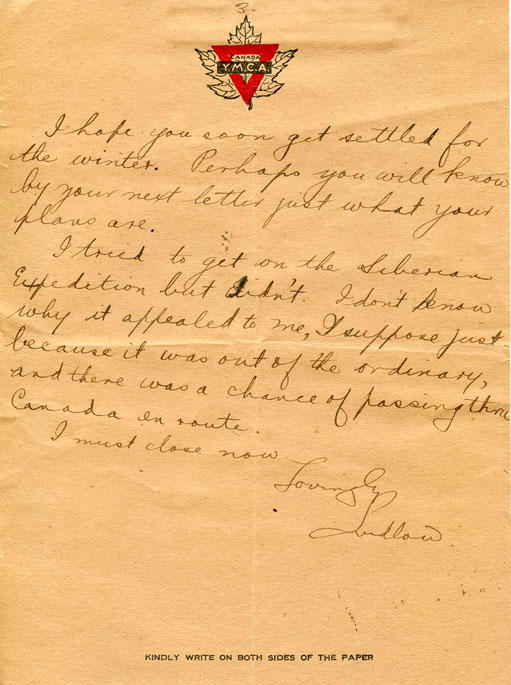 3.
CANADA
Y.M.C.A.
I hope you soon get settled for
the winter. Perhaps you will know
by your next letter just what your
plans are.
I tried to get on the Siberian
Expedition but didn't. I don't know
why it appealed to me, I suppose just
because it was out of the ordinary,
and there was a chance of passing thru
Canada en route.
I must close now
Lovingly
Ludlow
KINDLY WRITE ON BOTH SIDES OF THE PAPER